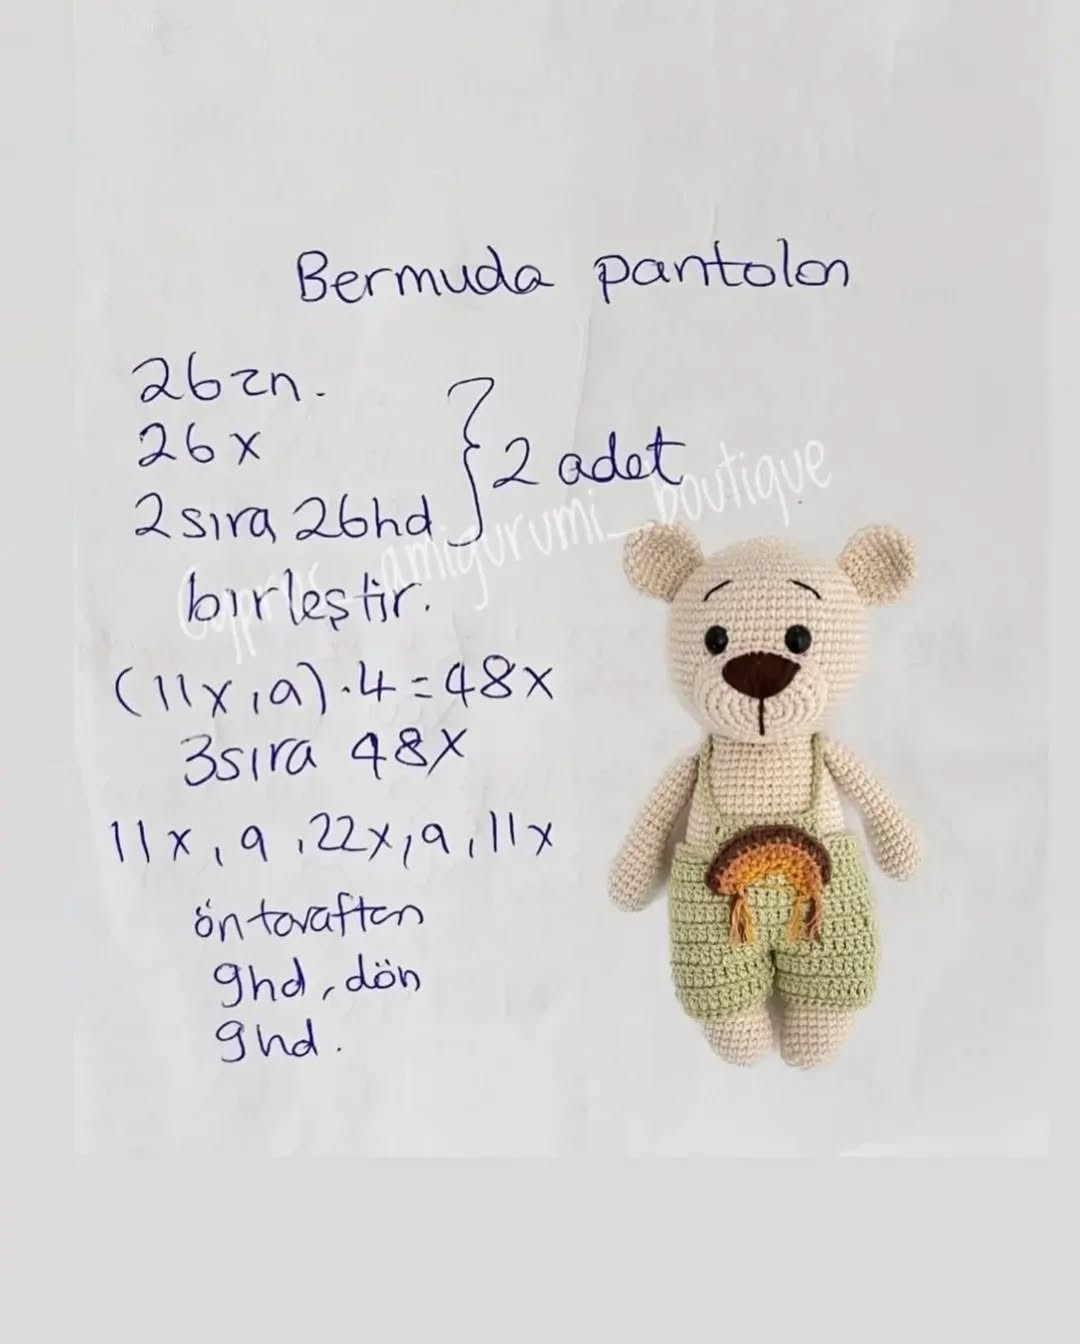 Bermuda pantolon
26 zn.
26 x
2 sıra 26hd } 2 adet
birleştir.
(11x, a).4=48x
3sıra 48x
11x, a, 22x, a, 11x
ön taraftan
9hd, dön
9hd.
amigurumi_boutique